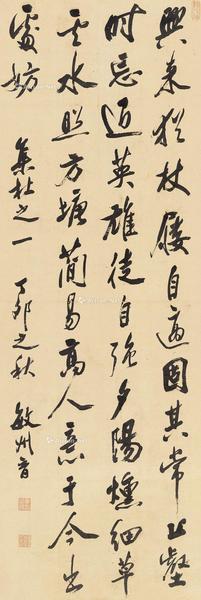 興來猶杖屨自適固其常丘壑
時忘返英雄徒自強夕陽燻細草
雲水照方塘簡易高人意于今出
處妨
集杜之一 丁卯之秋 敏州